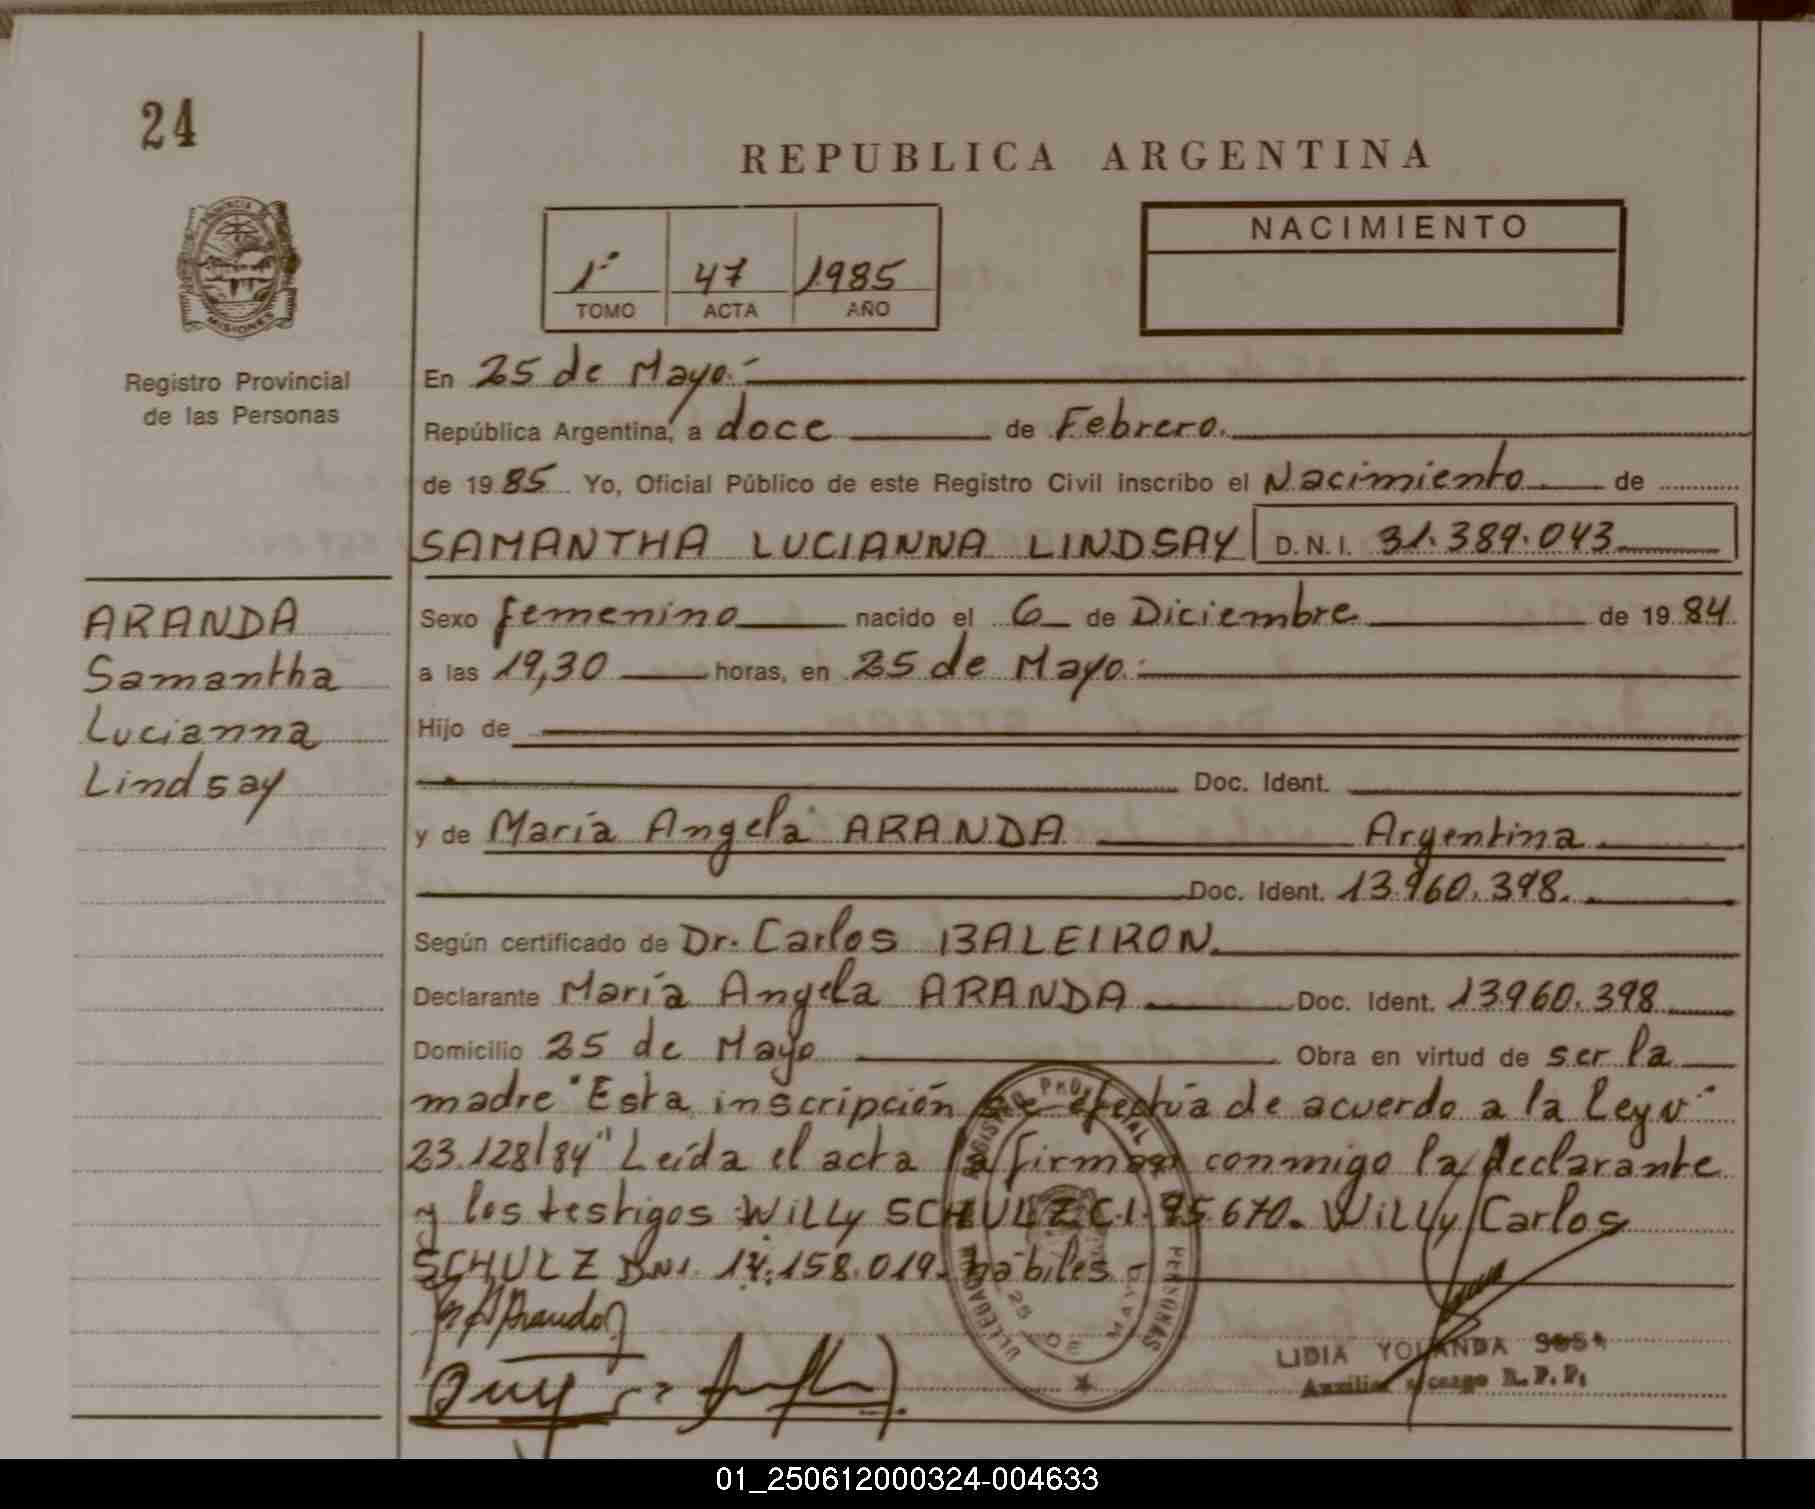 24
REPUBLICA ARGENTINA
PROVINCIA
MISIONES
Registro Provincial
de las Personas
1º 47 1985
TOMO ACTA AÑO
NACIMIENTO
En 25 de Mayo.-
República Argentina, a doce de Febrero.
de 1985 Yo, Oficial Público de este Registro Civil inscribo el Nacimiento de
SAMANTHA LUCIANNA LINDSAY D.N.I. 31.389.043
ARANDA
Samantha
Lucianna
Lindsay
Sexo femenino nacido el 6 de Diciembre de 1984.
a las 19,30 horas, en 25 de Mayo.-
Hijo de
Doc. Ident.
y de María Angela ARANDA Argentina
Doc. Ident. 13.960.398.
Según certificado de Dr. Carlos BALEIRON.
Declarante María Angela ARANDA Doc. Ident. 13.960.398
Domicilio 25 de Mayo Obra en virtud de ser la
madre "Esta inscripción se efectúa de acuerdo a la Ley Nº
23.128/84" Leída el acta la firman conmigo la declarante
y los testigos Willy SCHULZ C.I. 95.670. Willy Carlos
SCHULZ DNI. 17.158.019. hábiles
REGISTRO PROVINCIAL DE PERSONAS
DELEGACION
25 DE MAYO
LIDIA YOLANDA SOSA
Auxiliar a cargo R.P.P.
01_250612000324-004633